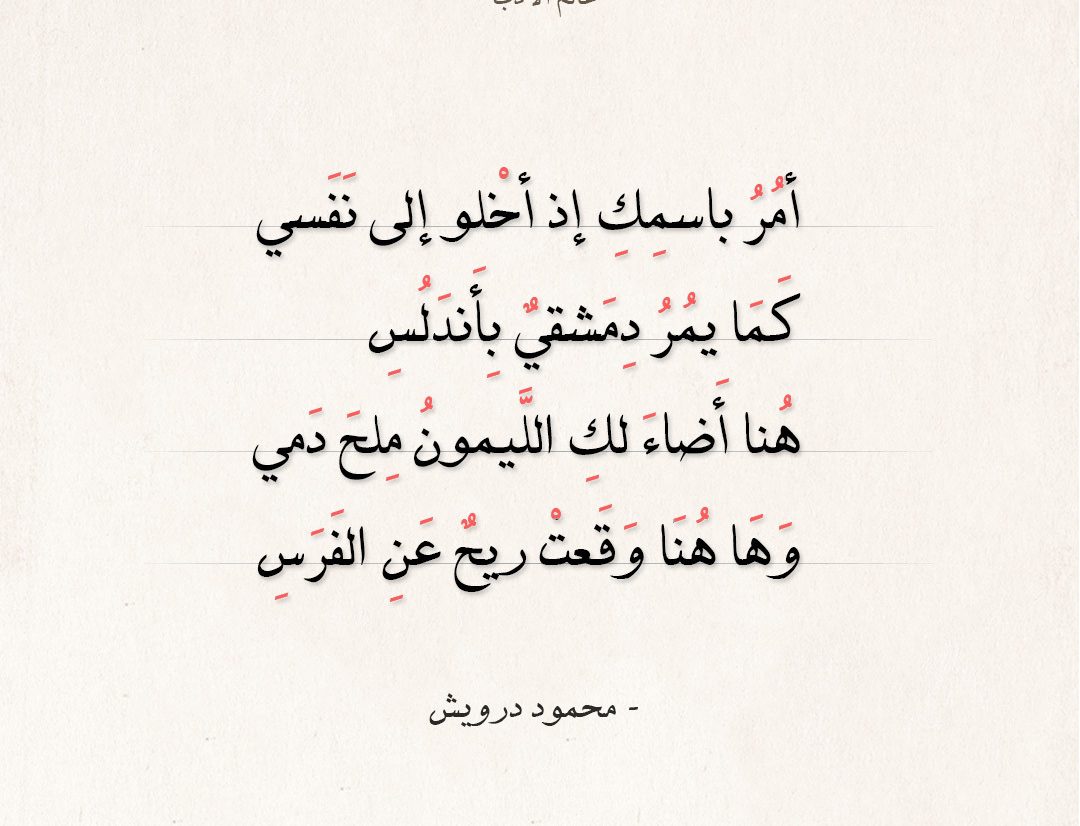 عالم الأدب
أمُرُ باسمِكِ إذ أخْلو إلى نَفَسي
كَمَا يمُرُ دِمَشقيٌ بِأَندَلُسِ
هُنا أَضاءَ لكِ اللَّيمونُ مِلحَ دَمي
وَهَا هُنَا وَقَعتْ ريحٌ عَنِ الفَرَسِ
- محمود درويش